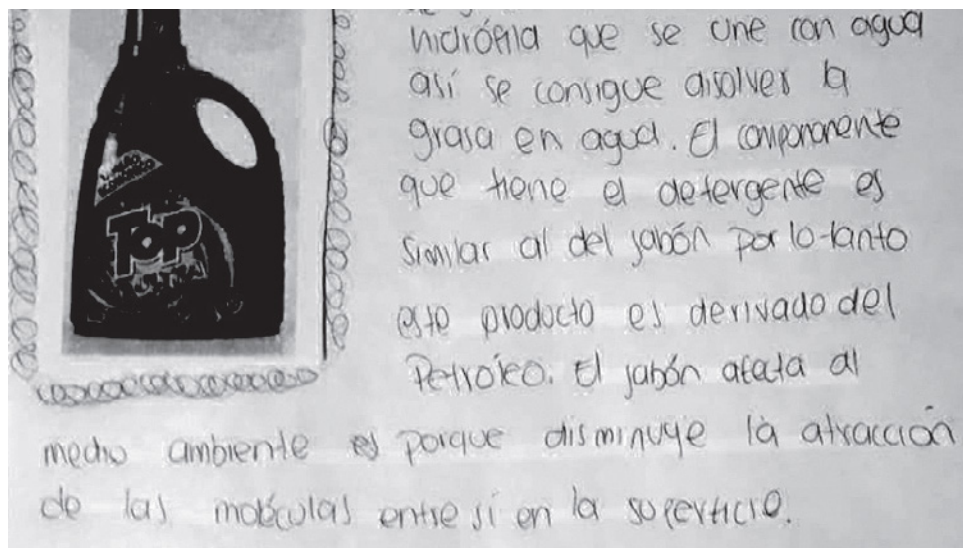 hidrófila que se une con agua
así se consigue disolver la
grasa en agua. El componente
que tiene el detergente es
Similar al del jabón por lo tanto
TOP
este producto es derivado del
Petroleo. El jabón afecta al
medio ambiente es porque disminuye la atracción
de las moléculas entre sí en la superficie.